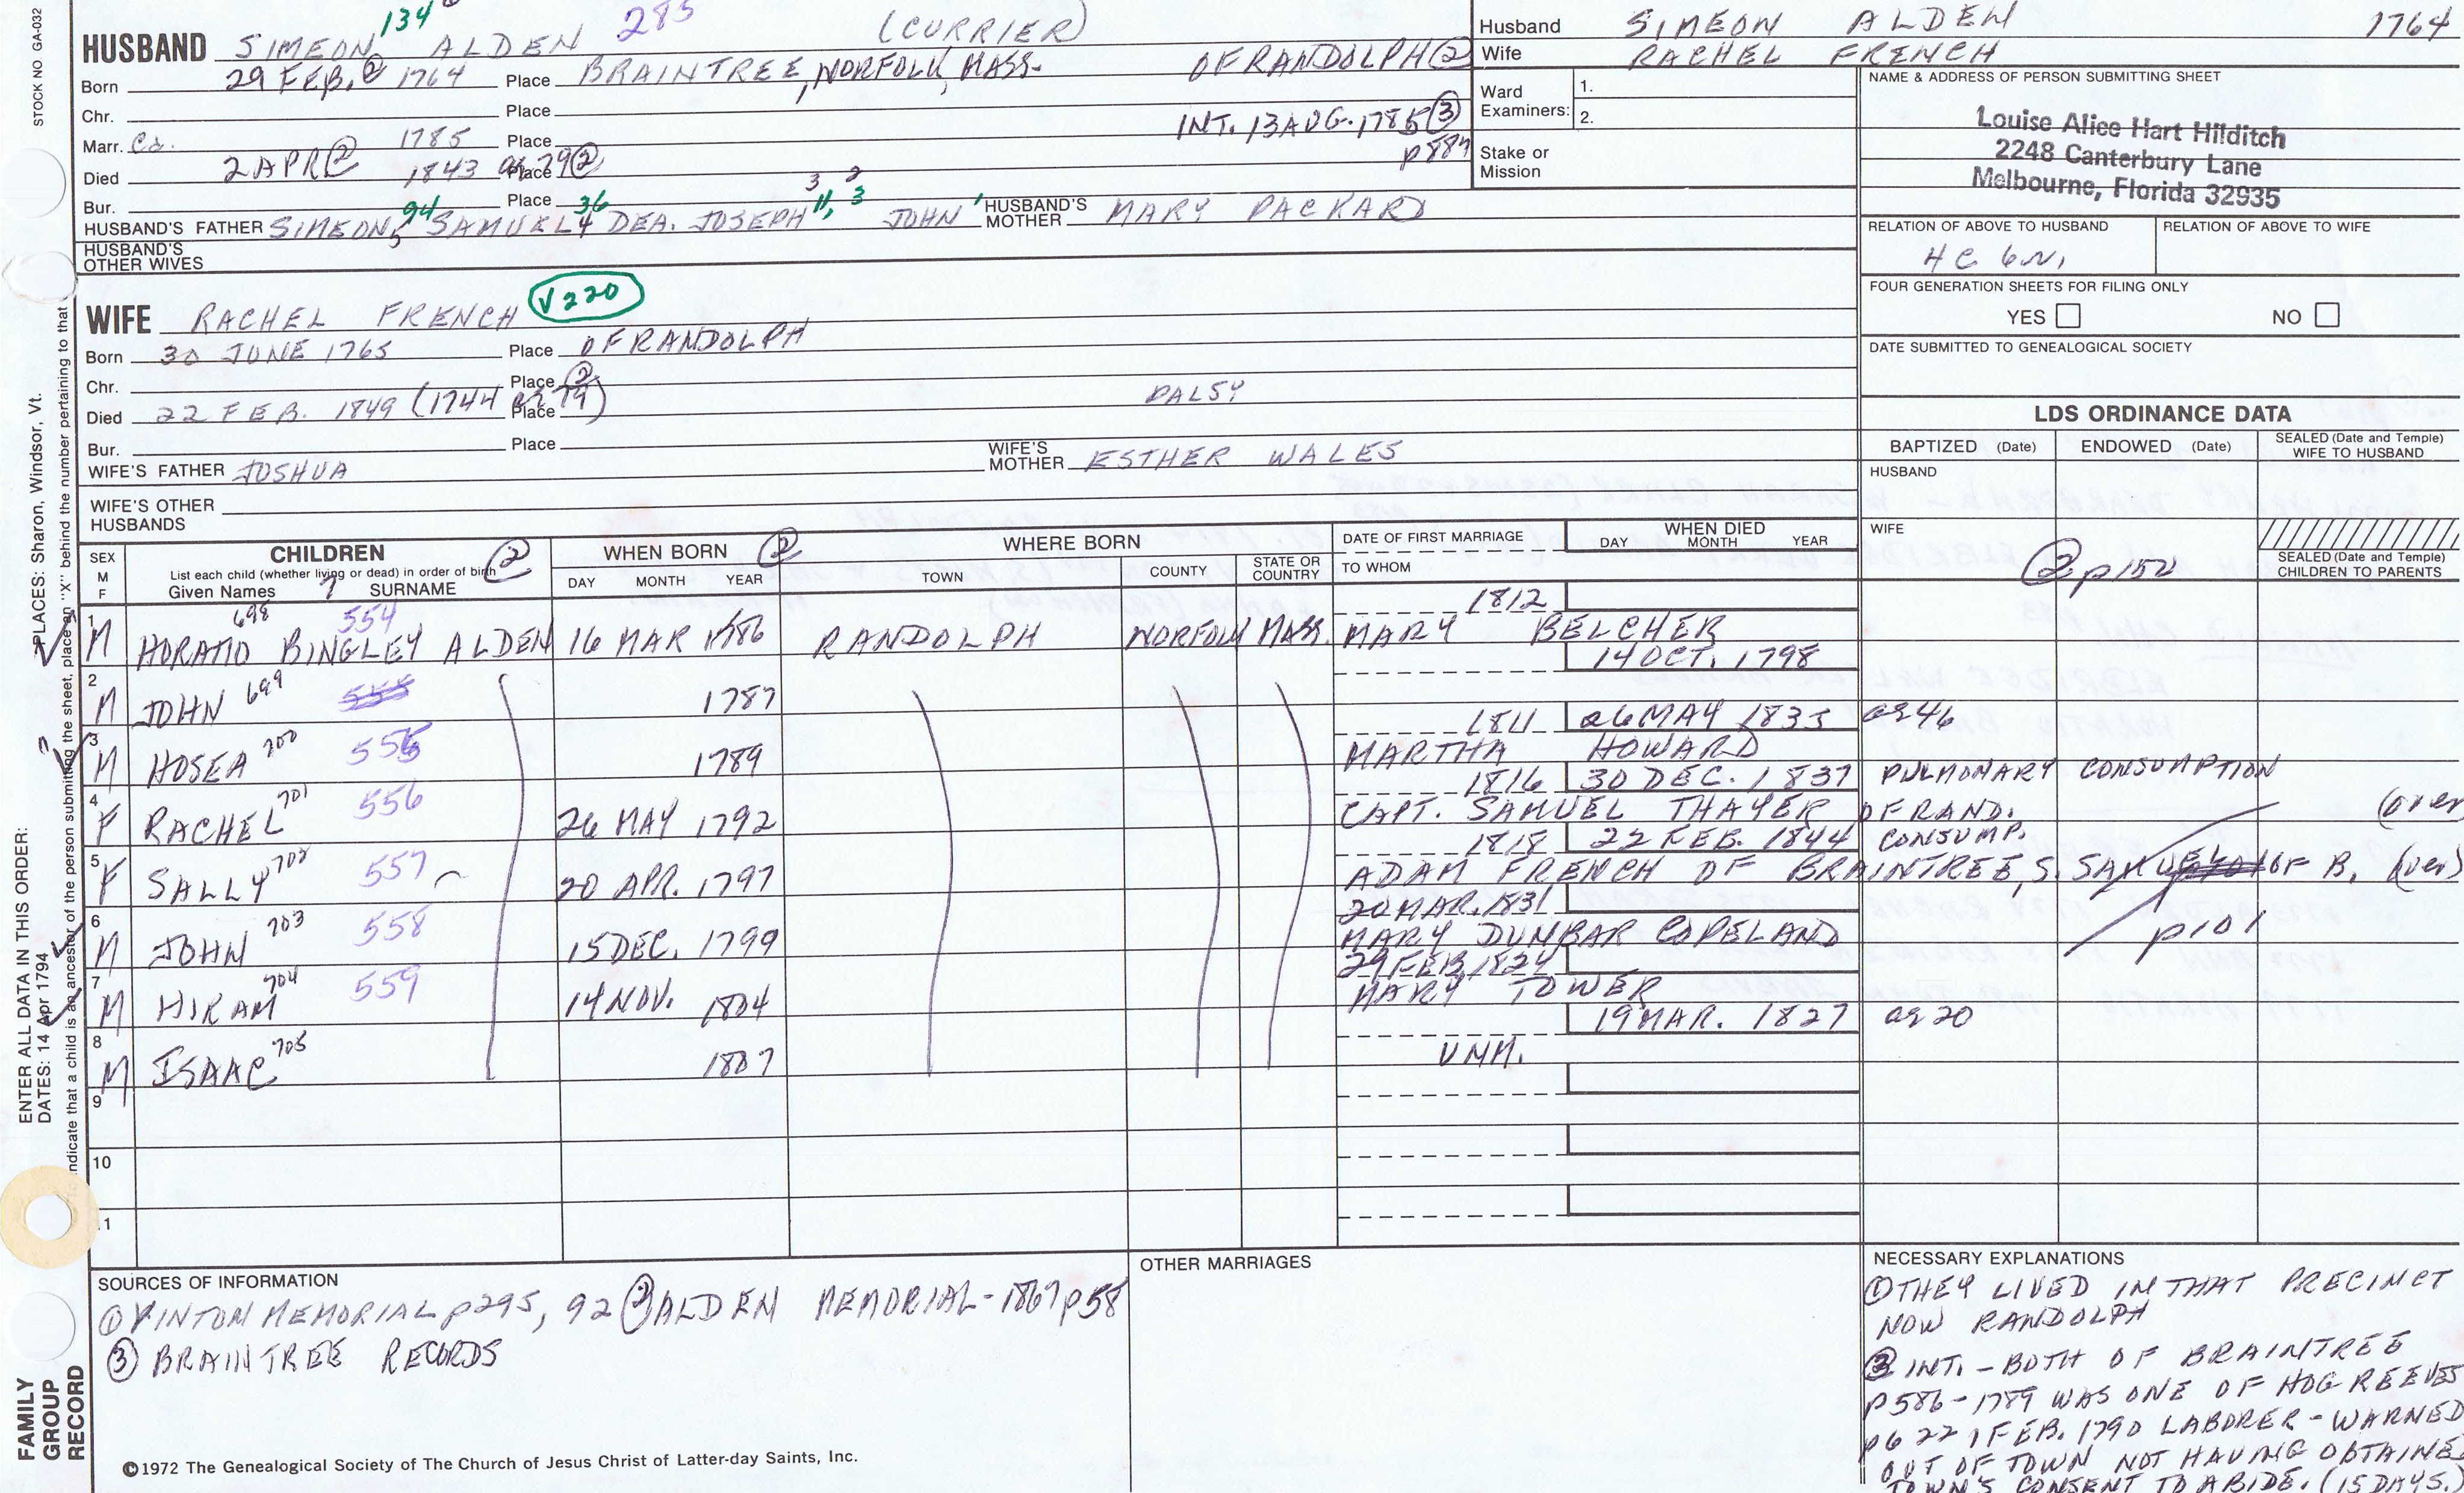 STOCK NO GA-032
134
285
(CURRIER)
HUSBAND SIMEON ALDEN
Born 29 FEB. ② 1764 Place BRAINTREE, NORFOLK, MASS. OF RANDOLPH ②
Chr. Place
INT. 13 AUG. 1785 ③
Marr. Ca. 1785 Place
p887
Died 2 APR ② 1843 ag 79 ② Place
Bur. Place
94 36 3 11, 2 3
HUSBAND'S FATHER SIMEON, 5 SAMUEL 4 DEA. JOSEPH JOHN 1 HUSBAND'S MOTHER MARY PACKARD
HUSBAND'S OTHER WIVES
Husband SIMEON ALDEN 1764
Wife RACHEL FRENCH
Ward Examiners: 1.
2.
Stake or Mission
NAME & ADDRESS OF PERSON SUBMITTING SHEET
Louise Alice Hart Hilditch
2248 Canterbury Lane
Melbourne, Florida 32935
RELATION OF ABOVE TO HUSBAND RELATION OF ABOVE TO WIFE
4C 6N,
FOUR GENERATION SHEETS FOR FILING ONLY
YES NO
DATE SUBMITTED TO GENEALOGICAL SOCIETY
WIFE RACHEL FRENCH √220
Born 30 JUNE 1765 Place OF RANDOLPH
Chr. Place ②
Died 22 FEB. 1849 (1744 ag 79) Place PALSY
Bur. Place
WIFE'S FATHER JOSHUA WIFE'S MOTHER ESTHER WALES
WIFE'S OTHER HUSBANDS
LDS ORDINANCE DATA
BAPTIZED (Date) ENDOWED (Date) SEALED (Date and Temple) WIFE TO HUSBAND
HUSBAND
WIFE
② p152
SEALED (Date and Temple) CHILDREN TO PARENTS
SEX M F
CHILDREN ②
List each child (whether living or dead) in order of birth
Given Names SURNAME
WHEN BORN ②
DAY MONTH YEAR
WHERE BORN
TOWN COUNTY STATE OR COUNTRY
DATE OF FIRST MARRIAGE
TO WHOM
WHEN DIED
DAY MONTH YEAR
698 554 1812
1 M HORATIO BINGLEY ALDEN 16 MAR 1786 RANDOLPH NORFOLK MASS. MARY BELCHER
14 OCT. 1798
2 M JOHN 699 555 1787
1811 26 MAY 1833 ag 46
3 M HOSEA 700 555 1789 MARTHA HOWARD
1816 30 DEC. 1837 PULMONARY CONSUMPTION
4 F RACHEL 701 556 26 MAY 1792 CAPT. SAMUEL THAYER OF RAND. (over
1818 22 FEB. 1844 CONSUMP.
5 F SALLY 702 557 20 APR. 1797 ADAM FRENCH OF BRAINTREE, S. SAMUEL OF B. (over)
20 MAR. 1831
6 M JOHN 703 558 15 DEC. 1799 MARY DUNBAR COPELAND p101
29 FEB. 1824
7 M HIRAM 704 559 14 NOV. 1804 MARY TOWER
19 MAR. 1827 ag 20
8 M ISAAC 705 1807 UNM.
9
10
11
SOURCES OF INFORMATION
① VINTON MEMORIAL p295, 92 ② ALDEN MEMORIAL - 1867 p58
③ BRAINTREE RECORDS
OTHER MARRIAGES
NECESSARY EXPLANATIONS
① THEY LIVED IN THAT PRECINCT
NOW RANDOLPH
③ INT. - BOTH OF BRAINTREE
p586 - 1789 WAS ONE OF HOG REEVES
p622 1 FEB. 1790 LABORER - WARNED
OUT OF TOWN NOT HAVING OBTAINED
TOWN'S CONSENT TO ABIDE. (15 DAYS.)
©1972 The Genealogical Society of The Church of Jesus Christ of Latter-day Saints, Inc.
FAMILY GROUP RECORD
ENTER ALL DATA IN THIS ORDER:
DATES: 14 Apr 1794
PLACES: Sharon, Windsor, Vt.
indicate that a child is an ancestor of the person submitting the sheet, place an "X" behind the number pertaining to that